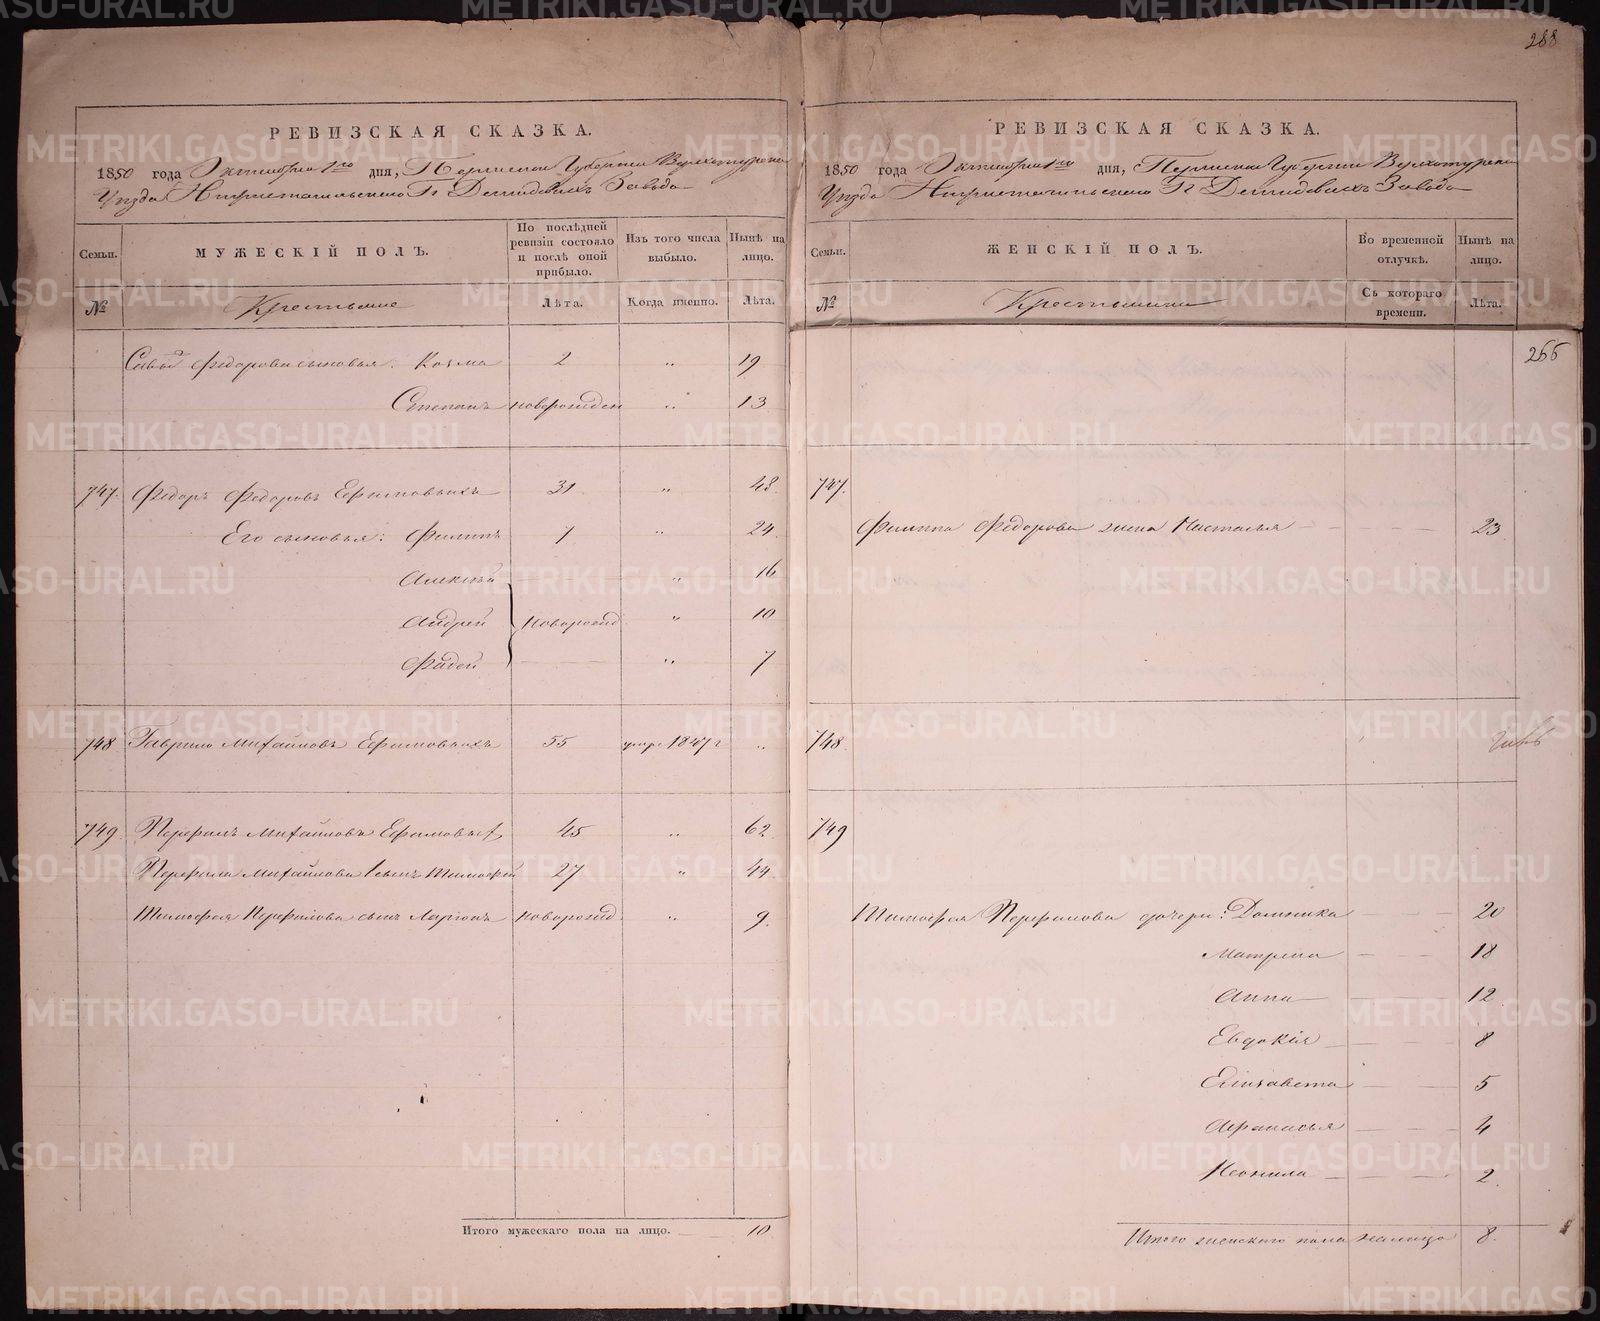 288
РЕВИЗСКАЯ СКАЗКА.
1850 года Октября 1го дня, Пермской Губернии Верхотурскаго
Уезда Нижнетагильскаго Гг Демидовыхъ Завода
Семьи. МУЖЕСКІЙ ПОЛЪ. По послѣдней ревизіи состояло и послѣ оной прибыло. Изъ того числа выбыло. Нынѣ на лицо.
№ Крестьяне Лѣта. Когда именно. Лѣта.
Федорова сыновья: Козма 2 „ 19
Степанъ новорожден „ 13
747. Федоръ Федоровъ Ефимовыхъ 31 „ 48
Его сыновья: Филипъ 7 „ 24
Алексѣй „ 16
Андрей новорожд „ 10
Фадей „ 7
748 Гаврило Михайловъ Ефимовыхъ 55 умре 1847 г „
749. Перфилъ Михайловъ Ефимовыхъ 45 „ 62
Перфила Михайлова сынъ Тимофей 27 „ 44
Тимофея Перфилова сынъ Ларіонъ новорожд „ 9
Итого мужескаго пола на лицо. 10
РЕВИЗСКАЯ СКАЗКА.
1850 года Октября 1го дня, Пермской Губернии Верхотурскаго
Уезда Нижнетагильскаго Гг Демидовыхъ Завода
Семьи. ЖЕНСКІЙ ПОЛЪ. Во временной отлучкѣ. Нынѣ на лицо.
№ Крестьянки Съ котораго времени. Лѣта.
266
747.
Филипа Федорова жена Настасья 23
748.
749
Тимофея Перфилова дочери: Домника 20
Матрена 18
Анна 12
Евдокія 8
Елизавета 5
Афанасья 4
Неонила 2
Итого женскаго пола налицо 8.
METRIKI.GASO-URAL.RU